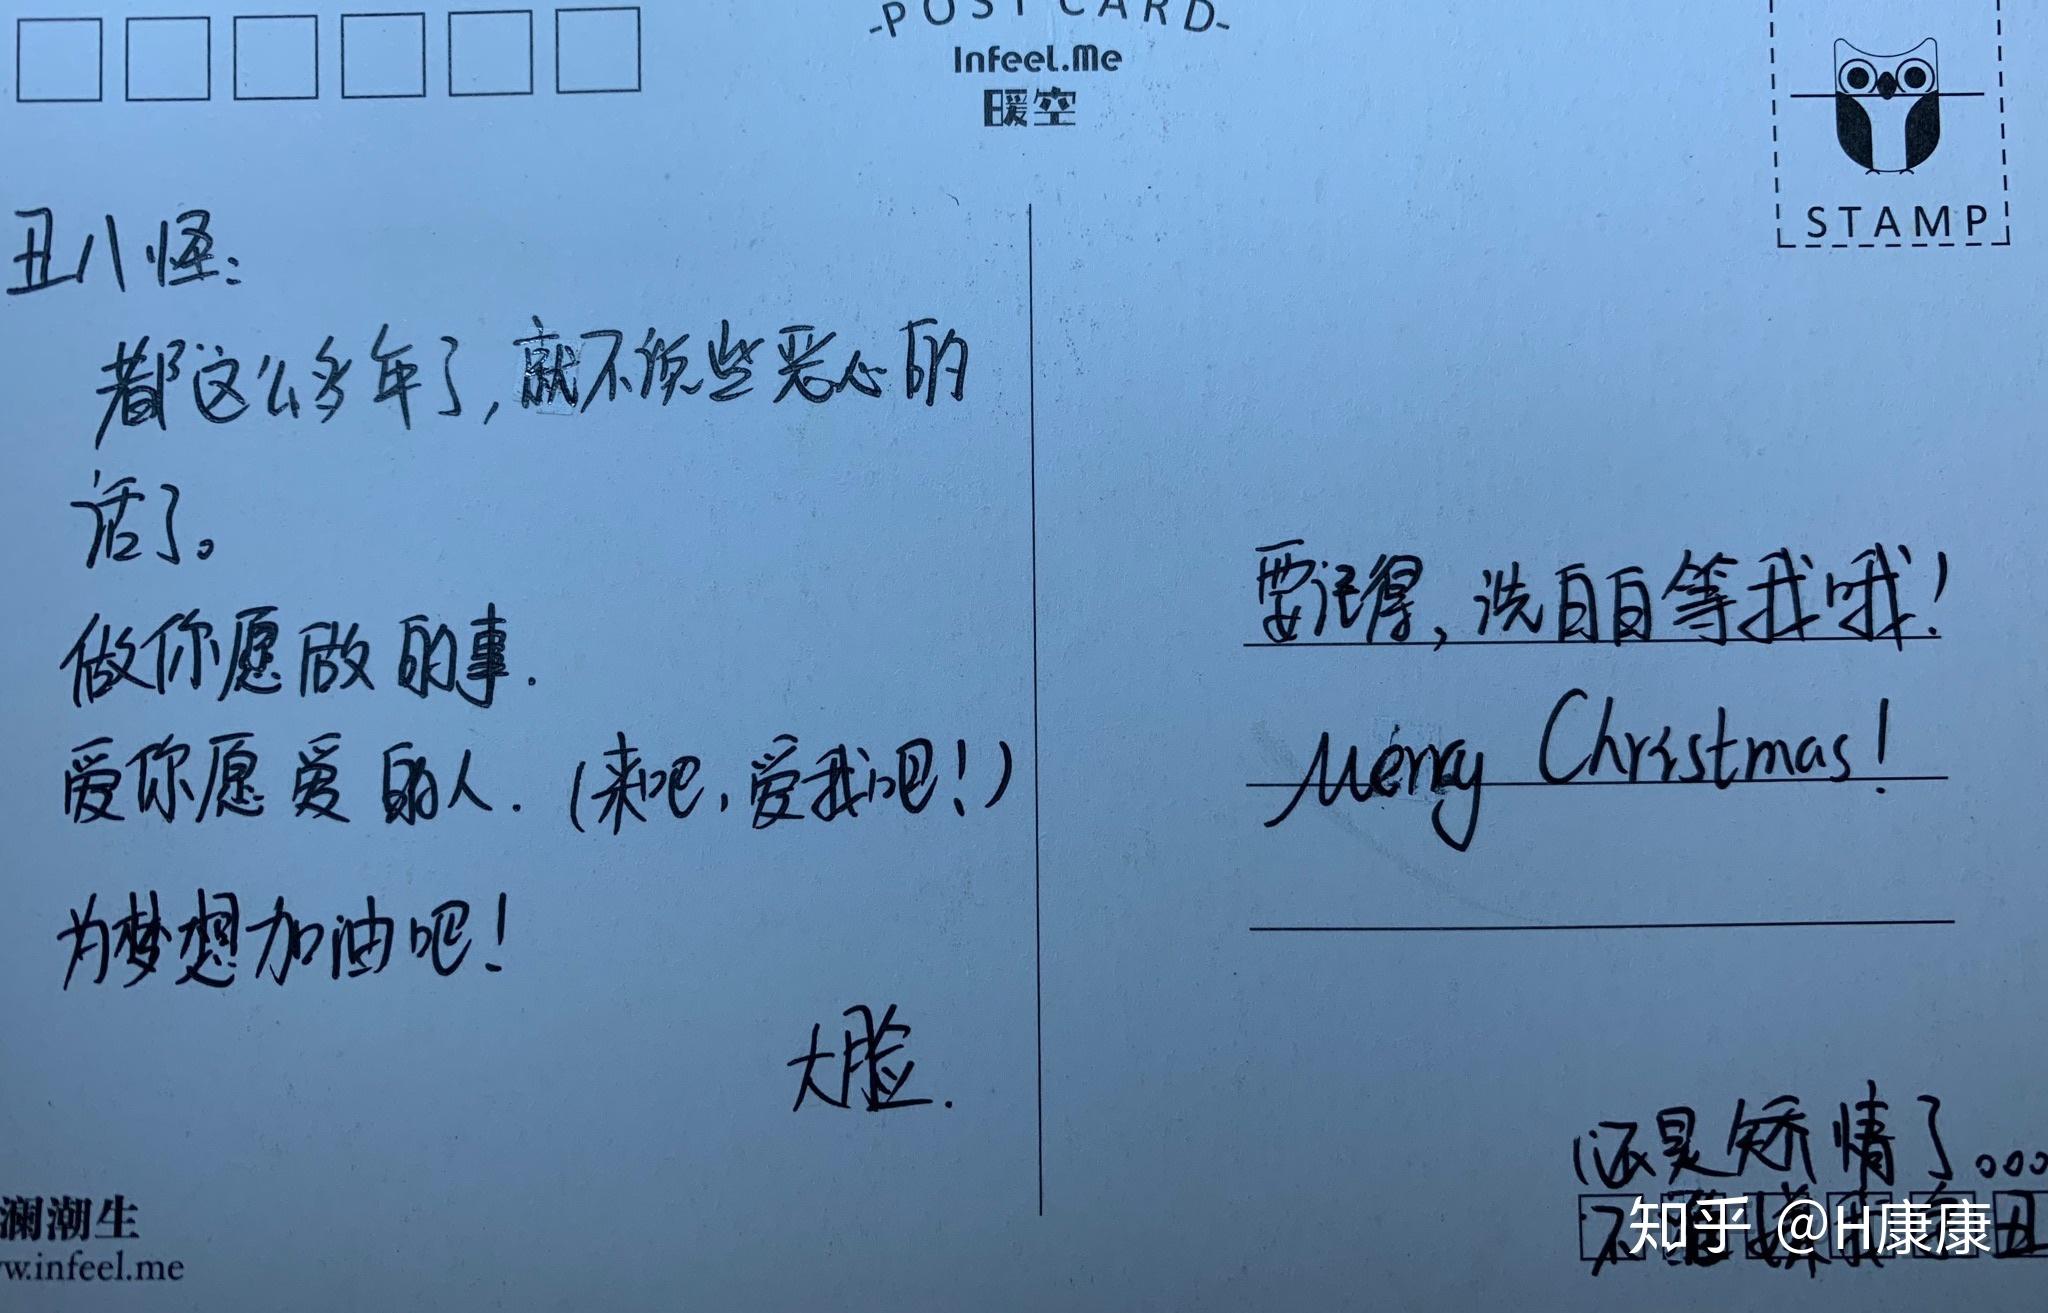 -POST CARD-
Infeel.Me
暖空
STAMP
丑八怪:
都这么多年了,就不说些恶心的
话了。
做你愿做的事.
爱你愿爱的人.(来吧,爱我吧!)
为梦想加油吧!
大脸.
要记得,洗白白等我哦!
Merry Christmas!
(还是矫情了...
不 丑
澜潮生
w.infeel.me
知乎 @H康康